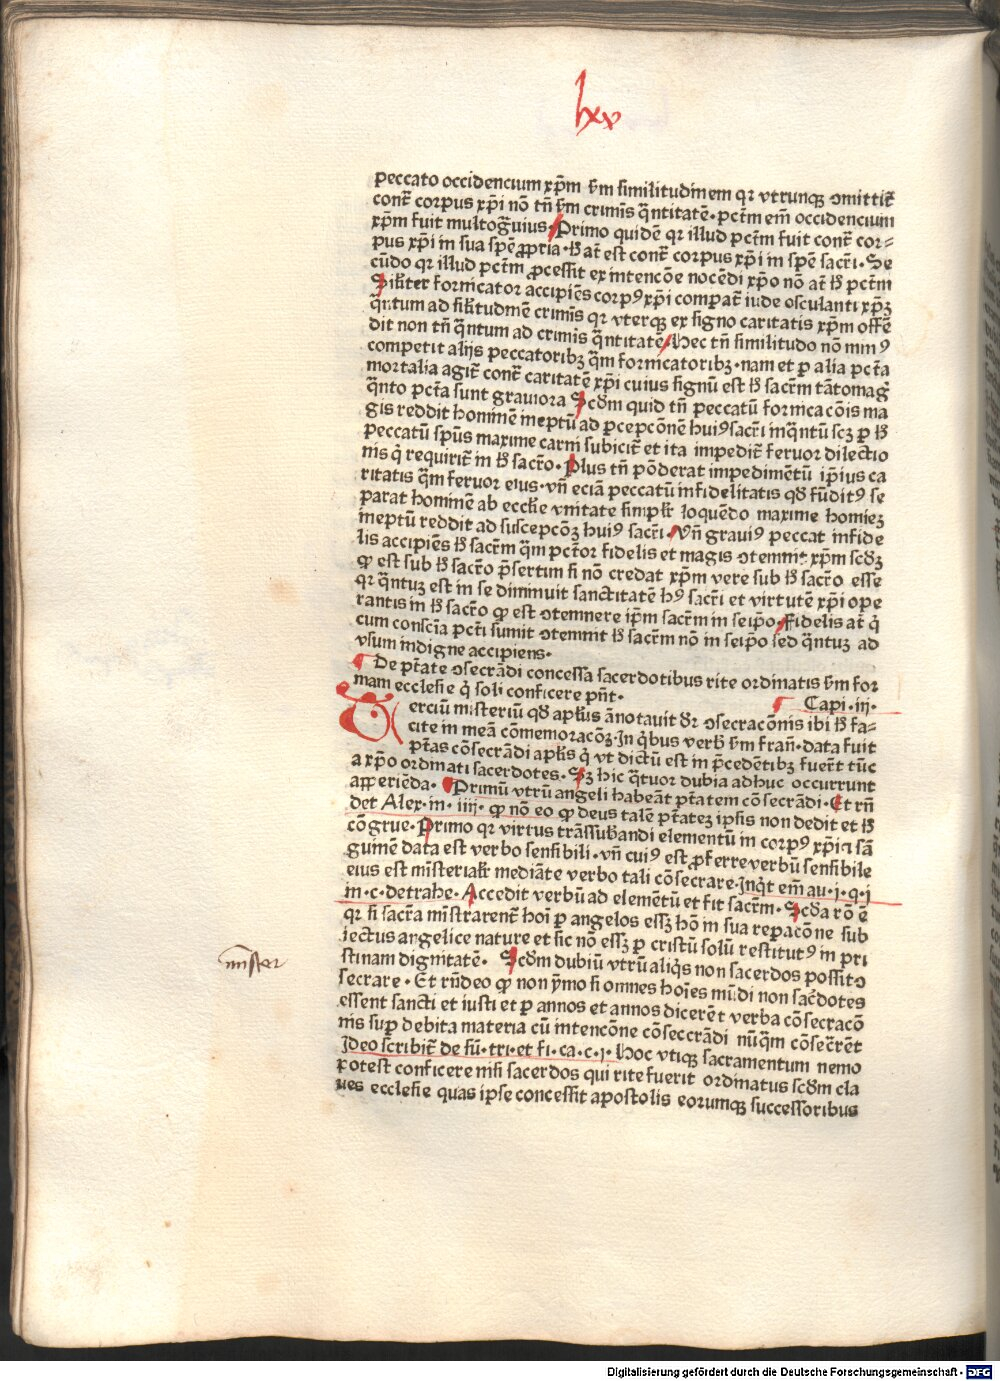 lxv
peccato occidencium xp̄m ẜm similitudinem qr vtrunqꝫ ꝯmittit᷑
cont᷑ corpus xp̄i nō tn̄ ẜm crimīs q̄ntitatē· pctm̄ em̄ occidencium
xp̄m fuit multog᷑uius· Primo quidē qr illud pctm̄ fuit cont᷑ cor⸗
pus xp̄i in sua spē ꝓpria· h̄ at̄ est cont᷑ corpus xp̄i in spē sacr̄i· Se
cūdo qr illud pctm̄ ꝓcessit ex intencōe nocēdi xp̄o nō at̄ h̄ pctm̄
Silr̄ter fornicator accipiēs corpꝰ xp̄i compat᷑ iude osculanti xp̄ꝫ
q̄ntum ad silr̄tudinē crimīs qr vterqꝫ ex signo caritatis xp̄m offē
dit non tn̄ q̄ntum ad crimīs q̄ntitatē· Hec tn̄ similitudo nō minꝰ
competit alijs peccatoribꝫ q̄m fornicatoribꝫ· nam et ꝑ alia pctā
mortalia agit᷑ cont᷑ caritatē xp̄i cuius signū est h̄ sacr̄m tātomag᷑
q̄nto pctā sunt grauiora Scd̄m quid tn̄ peccatū fornicacōis ma
gis reddit hominē ineptū ad ꝑcepcōnē huiꝰ sacr̄i inq̄ntū scꝫ ꝑ h̄
peccatū spūs maxime carni subicit᷑ et ita impedit᷑ feruor dilectio
nis q̄ requirit᷑ in h̄ sacr̄o· Plus tn̄ pōderat impedimētū ip̄ius ca
ritatis q̄m feruor eius· vn̄ eciā peccatū infidelitatis qd̄ fūditꝰ se
parat hominē ab eccłie vnitate simpłr loquēdo maxime homīeꝫ
ineptū reddit ad suscepcōꝫ huiꝰ sacr̄i· Vn̄ grauiꝰ peccat infide
lis accipiēs h̄ sacr̄m q̄m pct̄or fidelis et magis ꝯtemnit xp̄m scd̄ꝫ
ꝙ est sub h̄ sacr̄o p̄sertim si nō credat xp̄m vere sub h̄ sacr̄o esse
qr q̄ntuꝫ est in se diminuit sanctitatē hꝰ sacr̄i et virtutē xp̄i ope
rantis in h̄ sacr̄o ꝙ est ꝯtemnere ip̄m sacr̄m in seip̄o· Fidelis at̄ q̄
cum consciā pcti sumit ꝯtemnit h̄ sacr̄m nō in seip̄o sed q̄ntuꝫ ad
vsum indigne accipiens·
De pt̄ate ꝯsecrādi concessa sacerdotibus rite ordinatis ẜm for
mam ecclesie q̄ soli conficere pn̄t· Capi· iij·
Terciū misteriū qd̄ apłus ānotauit dr̄ ꝯsecracōnis ibi h̄ fa⸗
cite in meā cōmemoracōꝫ· In q̄bus verb̄ ẜm fran̄· data fuit
pt̄as cōsecrādi apłis q̄ vt dictū est in p̄cedētibꝫ fuer̄t tūc
a xp̄o ordinati sacerdotes· Sꝫ hic q̄tuor dubia adhuc occurrunt
apperiēda· Primū vtrū angeli habeāt pt̄atem cōsecrādi· Et rn̄
det Alex· in· iiij· ꝙ nō eo ꝙ deus talē pt̄ateꝫ ipsis non dedit et h̄
cōgrue· Primo qr virtus trāssub̄andi elementū in corpꝰ xp̄i ꞇ sā
guinē data est verbo sensibili· vn̄ cuiꝰ est ꝓferre verbū sensibile
eius est mīsteriałr mediāte verbo tali cōsecrare· Inq̄t em̄ au· j· q· j
in· c· detrahe· Accedit verbū ad elemētū et fit sacr̄m· Scd̄a rō ē
qr si sacr̄a mīstrarent᷑ hoī ꝑ angelos essꝫ hō in sua reꝑacōne sub
iectus angelice nature et sic nō essꝫ ꝑ cristū solū restitutꝰ in pri
stinam dignitatē· Scd̄m dubiū vtrū aliq̄s non sacerdos possit ꝯ
secrare· Et rn̄deo ꝙ non ymo si omnes hoīes mūdi non sac̄dotes
essent sancti et iusti et ꝑ annos et annos dicerēt verba cōsecracō
nis suꝑ debita materia cū intencōne cōseccrādi nūq̄m cōsec̄rēt
Ideo scribit᷑ de sū· tri· et fi· ca· c· j· Hoc vtiqꝫ sacramentum nemo
potest conficere nisi sacerdos qui rite fuerit ordinatus scd̄m cla
ues ecclesie quas ipse concessit apostolis eorumqꝫ successoribus
mīster
Digitalisierung gefördert durch die Deutsche Forschungsgemeinschaft - DFG